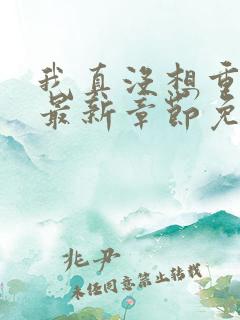 我真没想重
最新章节免
兆尹
未经同意禁止转载